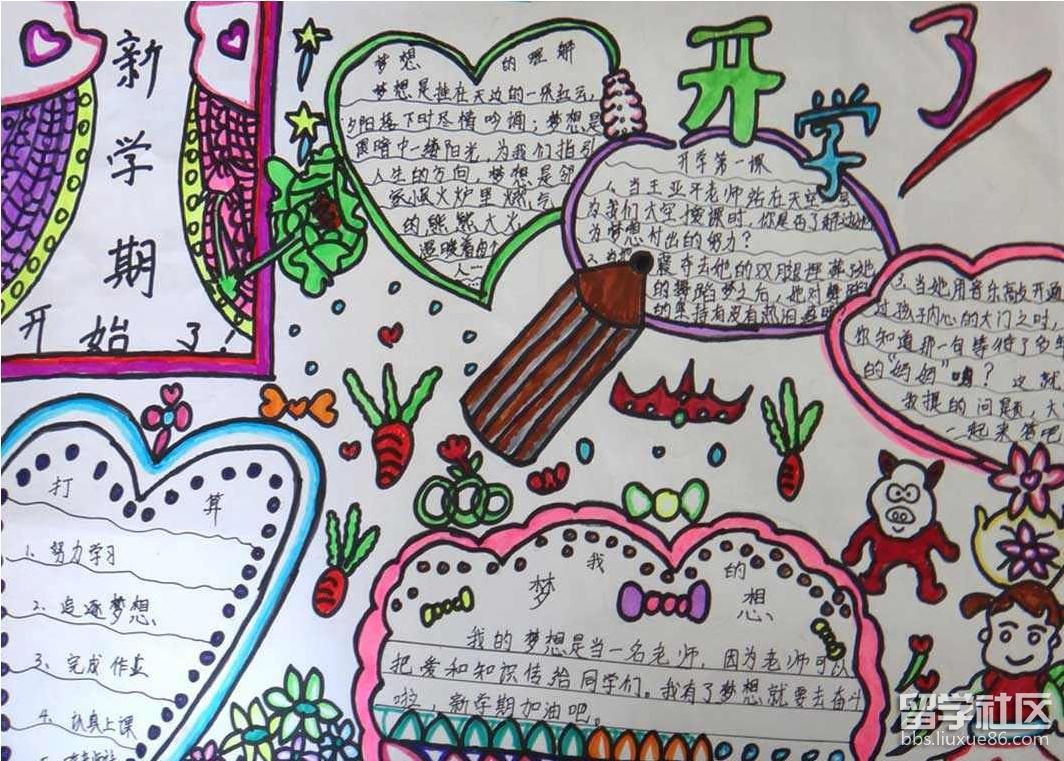 新学期
开始了!
开学了
梦想的理解
梦想是挂在天边的一张红云,
夕阳落下时尽情吟诵;梦想是
黑暗中一缕阳光,为我们指引
人生的方向,梦想是邻
家温火炉里燃气
的熊熊大火
温暖着自己
人…
开学第一课
1、当王亚平老师站在天空
为我们太空授课时,你是否了解过她
为梦想付出的努力?
夺去她的双腿
的舞蹈梦之后,她对舞蹈
的坚持有没有热泪
3、当她用音乐敲开通
过孩子内心的大门之时,
你知道那一句等待了多年
的“妈妈”嘛?这就
我提的问题,大
一起来答吧
打算
1、努力学习
2、追逐梦想、
3、完成作业
4、认真上课
我的
梦想、
我的梦想是当一名老师,因为老师可以
把爱和知识传给同学们。我有了梦想就要去奋斗
啦,新学期加油吧。
留学社区
bbs.liuxue86.com